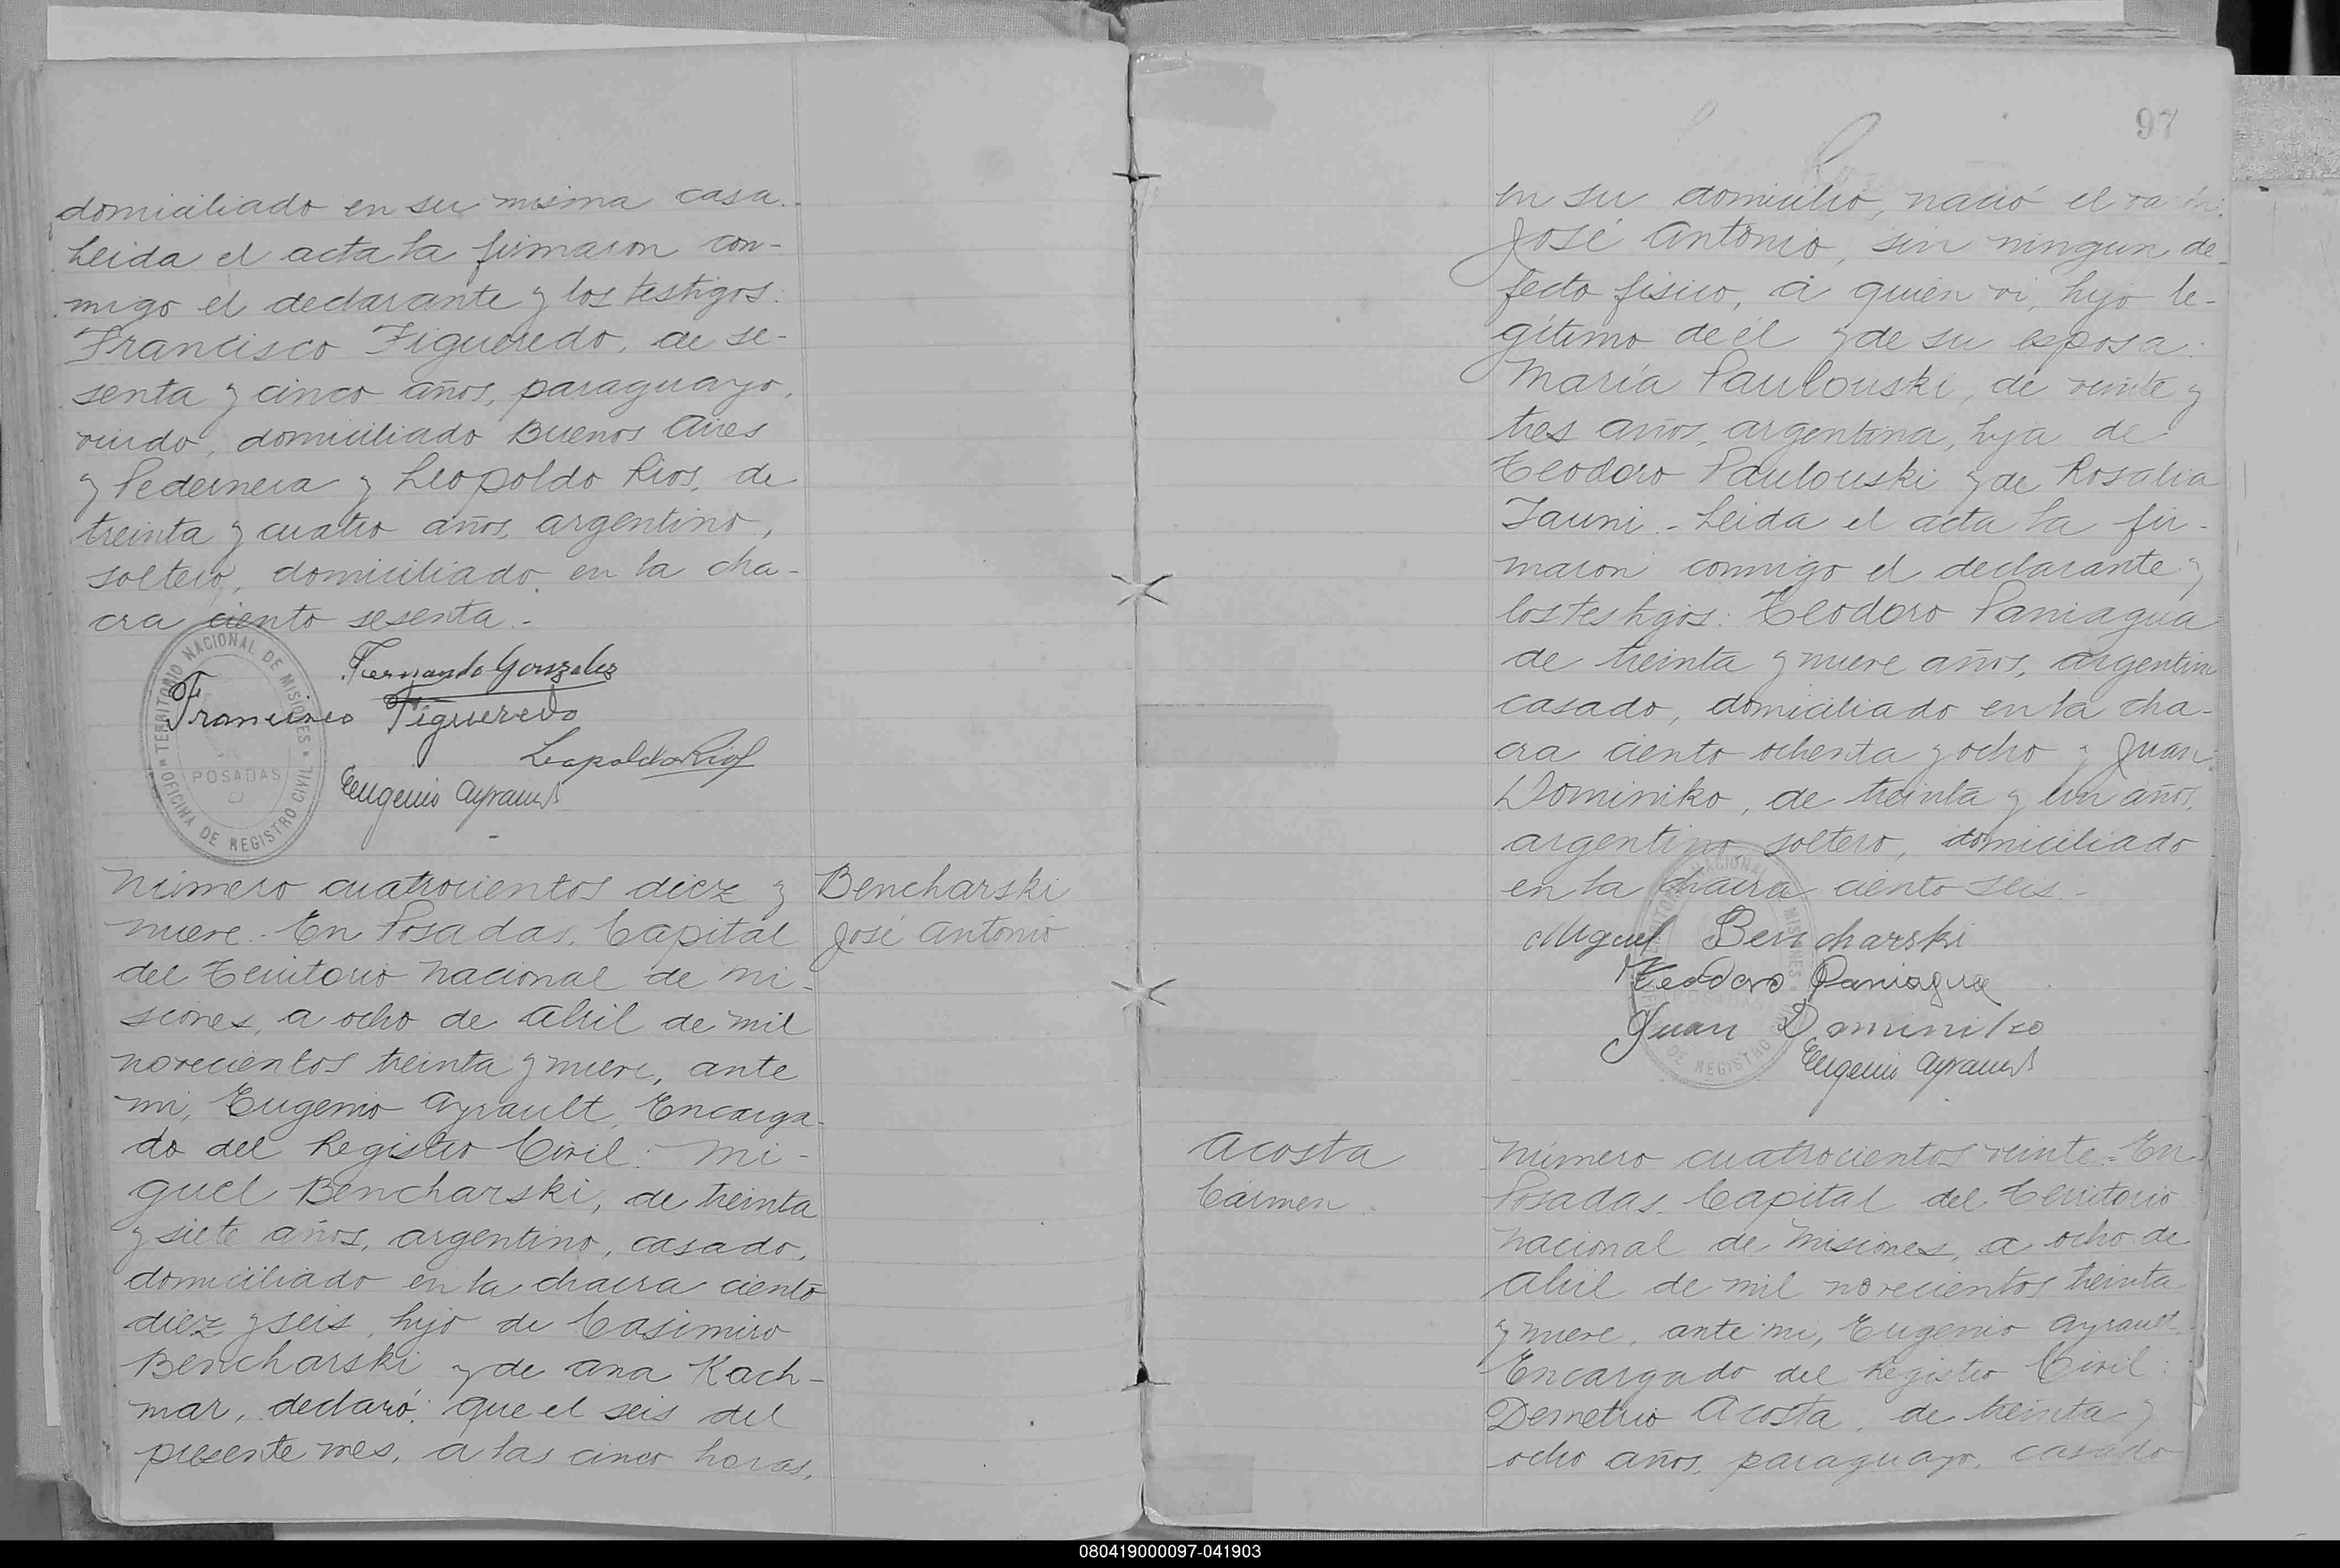 domiciliado en su misma casa.-
Leida el acta la firmaron con-
migo el declarante y los testigos:
Francisco Figueredo, de se-
senta y cinco años, paraguayo,
viudo, domiciliado Buenos Aires
y Pedernera y Leopoldo Rios, de
treinta y cuatro años, argentino,
soltero, domiciliado en la cha-
cra ciento sesenta.-
Fernando Gonzalez
Francisco Figueredo
Leopoldo Rios
Eugenio Ayrault
TERRITORIO NACIONAL DE MISIONES
POSADAS
OFICINA DE REGISTRO CIVIL
Número cuatrocientos diez y
nueve.- En Posadas, Capital
del Territorio Nacional de Mi-
siones, a ocho de Abril de mil
novecientos treinta y nueve, ante
mi, Eugenio Ayrault, Encarga-
do del Registro Civil: Mi-
guel Bencharski, de treinta
y siete años, argentino, casado,
domiciliado en la chacra ciento
diez y seis, hijo de Casimiro
Bencharski y de Ana Kach-
mar, declaró: que el seis del
presente mes, a las cinco horas,
Bencharski
José Antonio
97
en su domicilio, nació el varón:
José Antonio, sin ningun de-
fecto fisico, á quien vi, hijo le-
gítimo de él y de su esposa:
María Paulouski, de veinte y
tres años, argentina, hija de
Teodoro Paulouski y de Rosalia
Jauni.- Leida el acta la fir-
maron conmigo el declarante y
los testigos: Teodoro Paniagua
de treinta y nueve años, argentino
casado, domiciliado en la cha-
cra ciento ochenta y ocho y Juan
Dominiko, de treinta y un años,
argentino soltero, domiciliado
en la chacra ciento seis.-
Miguel Bencharski
Teodoro Paniagua
Juan Dominiko
Eugenio Ayrault
Acosta
Cármen
Número cuatrocientos veinte.- En
Posadas, Capital del Territorio
Nacional de Misiones, a ocho de
Abril de mil novecientos treinta
y nueve, ante mi, Eugenio Ayrault,
Encargado del Registro Civil:
Demetrio Acosta, de treinta y
ocho años, paraguayo, casado
080419000097-041903